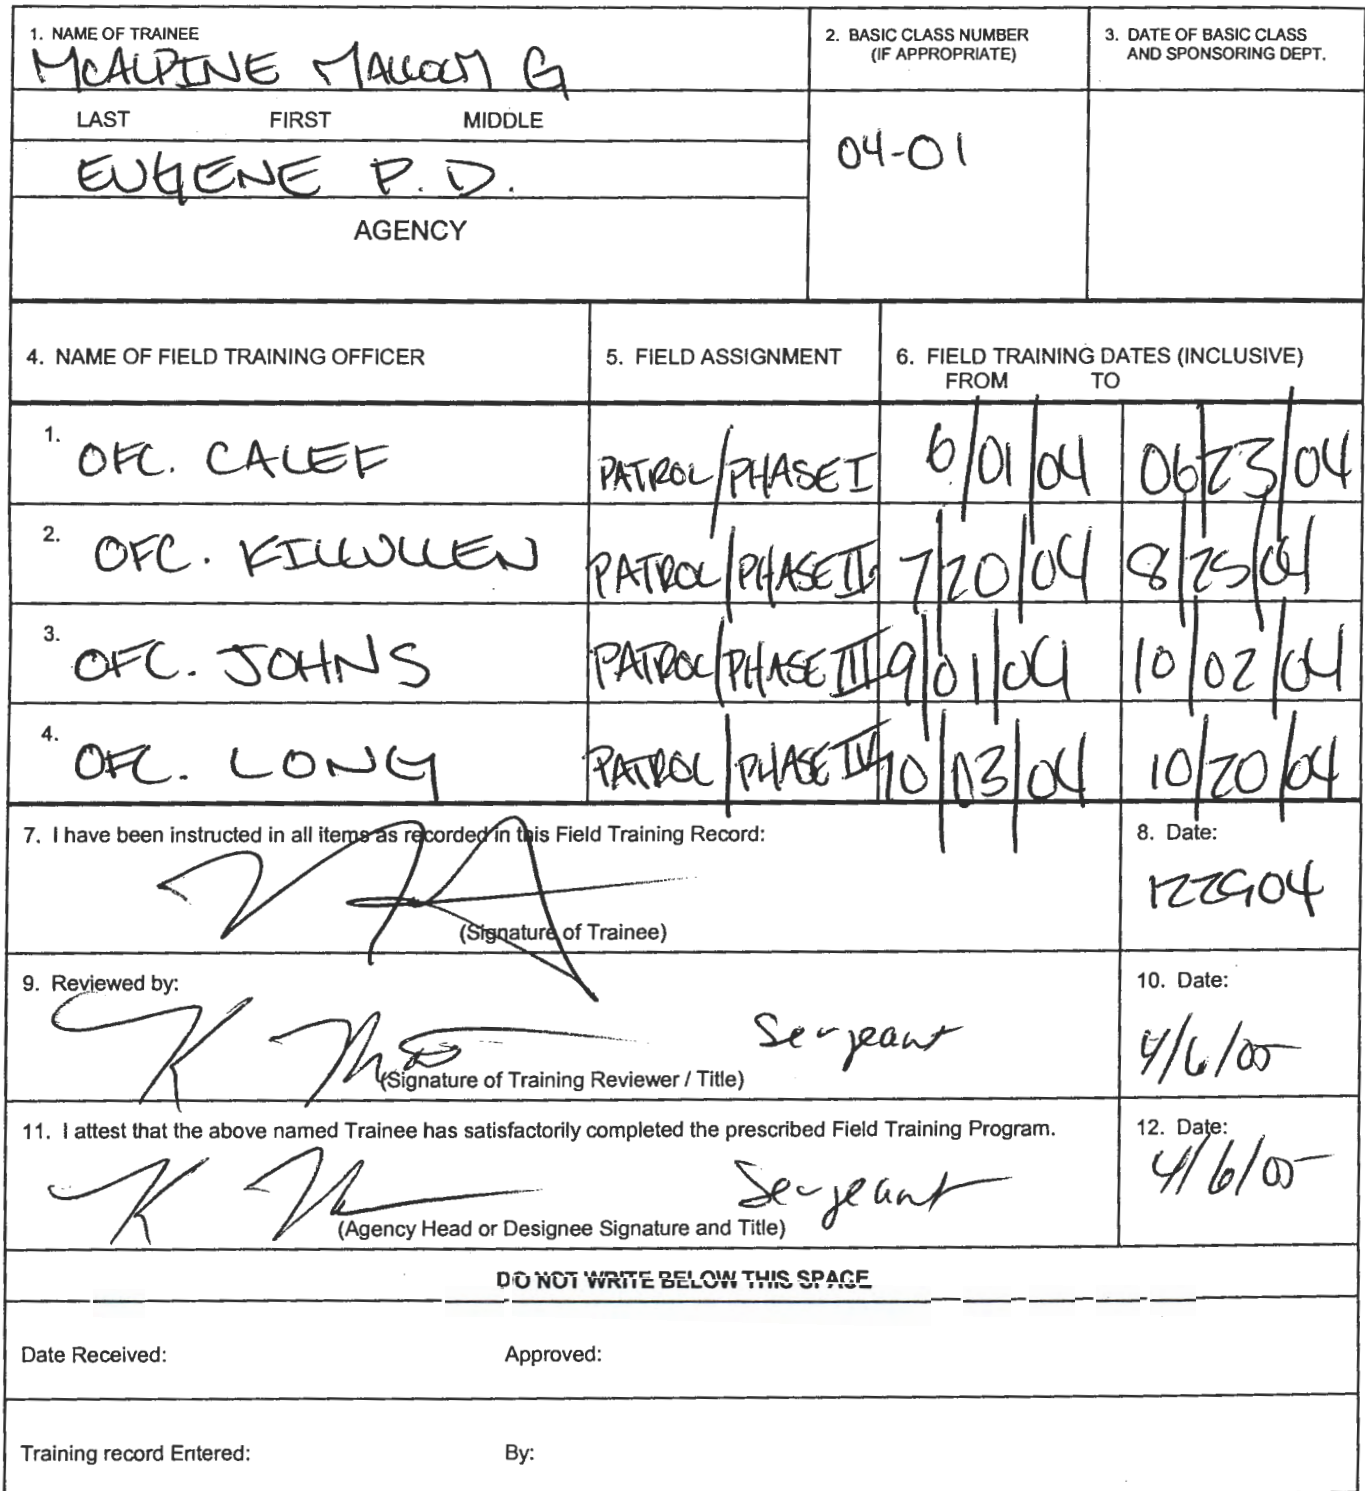 1. NAME OF TRAINEE
MCALPINE MALCOLM G
LAST FIRST MIDDLE
EUGENE P.D.
AGENCY
2. BASIC CLASS NUMBER
(IF APPROPRIATE)
04-01
3. DATE OF BASIC CLASS
AND SPONSORING DEPT.
4. NAME OF FIELD TRAINING OFFICER 5. FIELD ASSIGNMENT 6. FIELD TRAINING DATES (INCLUSIVE)
FROM TO
1. OFC. CALEF PATROL/PHASE I 6/01/04 06/23/04
2. OFC. KILLULLEN PATROL/PHASE II 7/20/04 8/25/04
3. OFC. JOHNS PATROL/PHASE III 9/01/04 10/02/04
4. OFC. LONG PATROL/PHASE IV 10/03/04 10/20/04
7. I have been instructed in all items as recorded in this Field Training Record: 8. Date:
122904
(Signature of Trainee)
9. Reviewed by: 10. Date:
Sergeant 4/6/05
(Signature of Training Reviewer / Title)
11. I attest that the above named Trainee has satisfactorily completed the prescribed Field Training Program. 12. Date:
Sergeant 4/6/05
(Agency Head or Designee Signature and Title)
DO NOT WRITE BELOW THIS SPACE
Date Received: Approved:
Training record Entered: By: